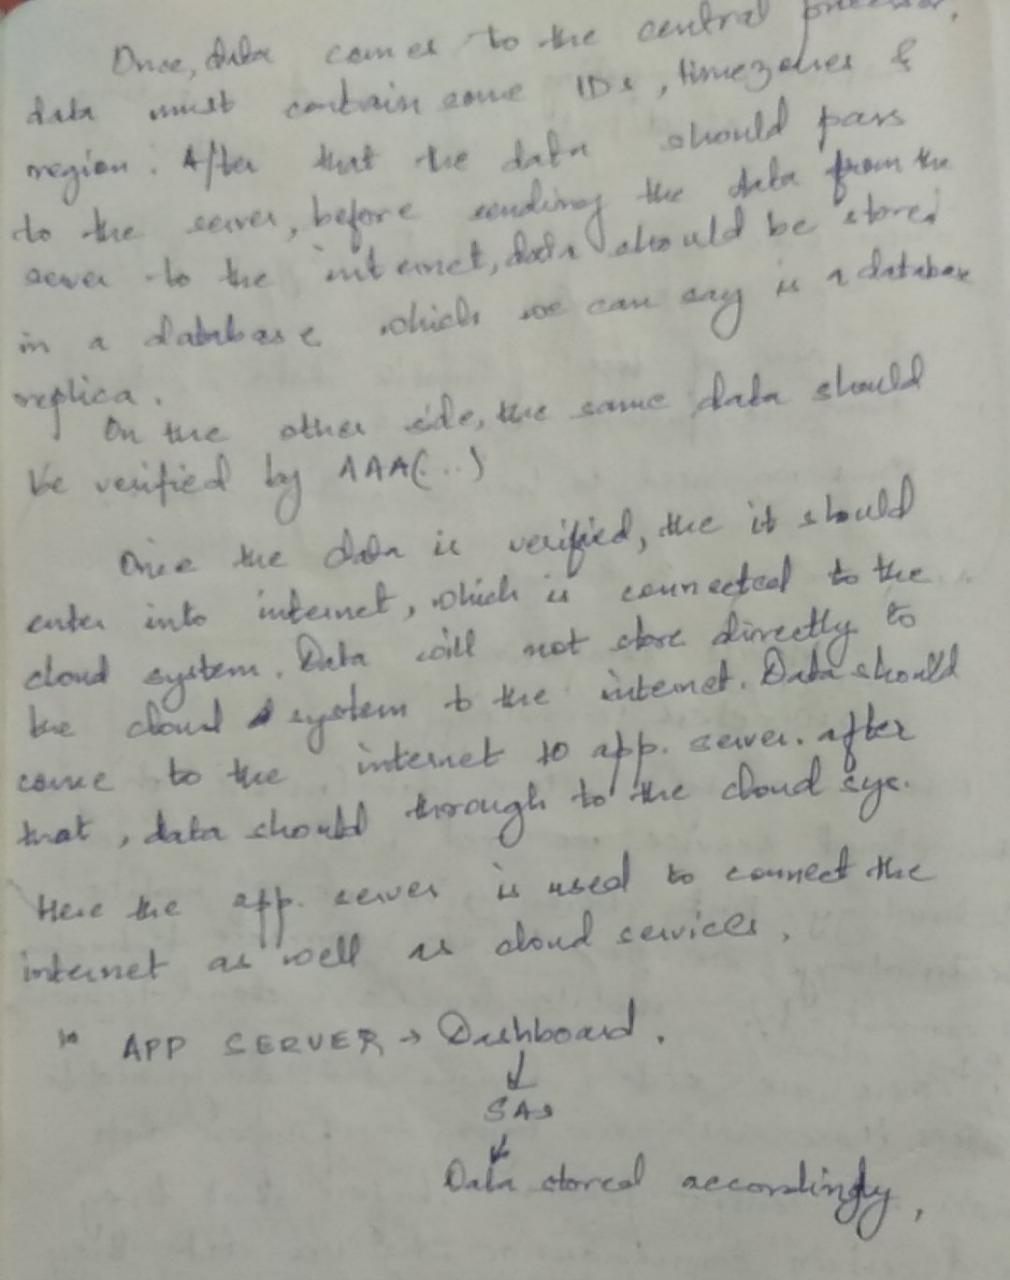 Once, data comes to the central processor,
data must contain some IDs, timezones &
region. After that the data should pass
to the server, before sending the data from the
server to the internet, data should be stored
in a database which we can say is a database
replica.
On the other side, the same data should
be verified by AAA(...)
Once the data is verified, the it should
enter into internet, which is connected to the
cloud system. Data will not store directly to
the cloud system to the internet. Data should
come to the internet to app. server. after
that, data should through to the cloud sys.
Here the app. server is used to connect the
internet as well as cloud services.
In APP SERVER → Dashboard.
↓
SAS
↓
Data stored accordingly,